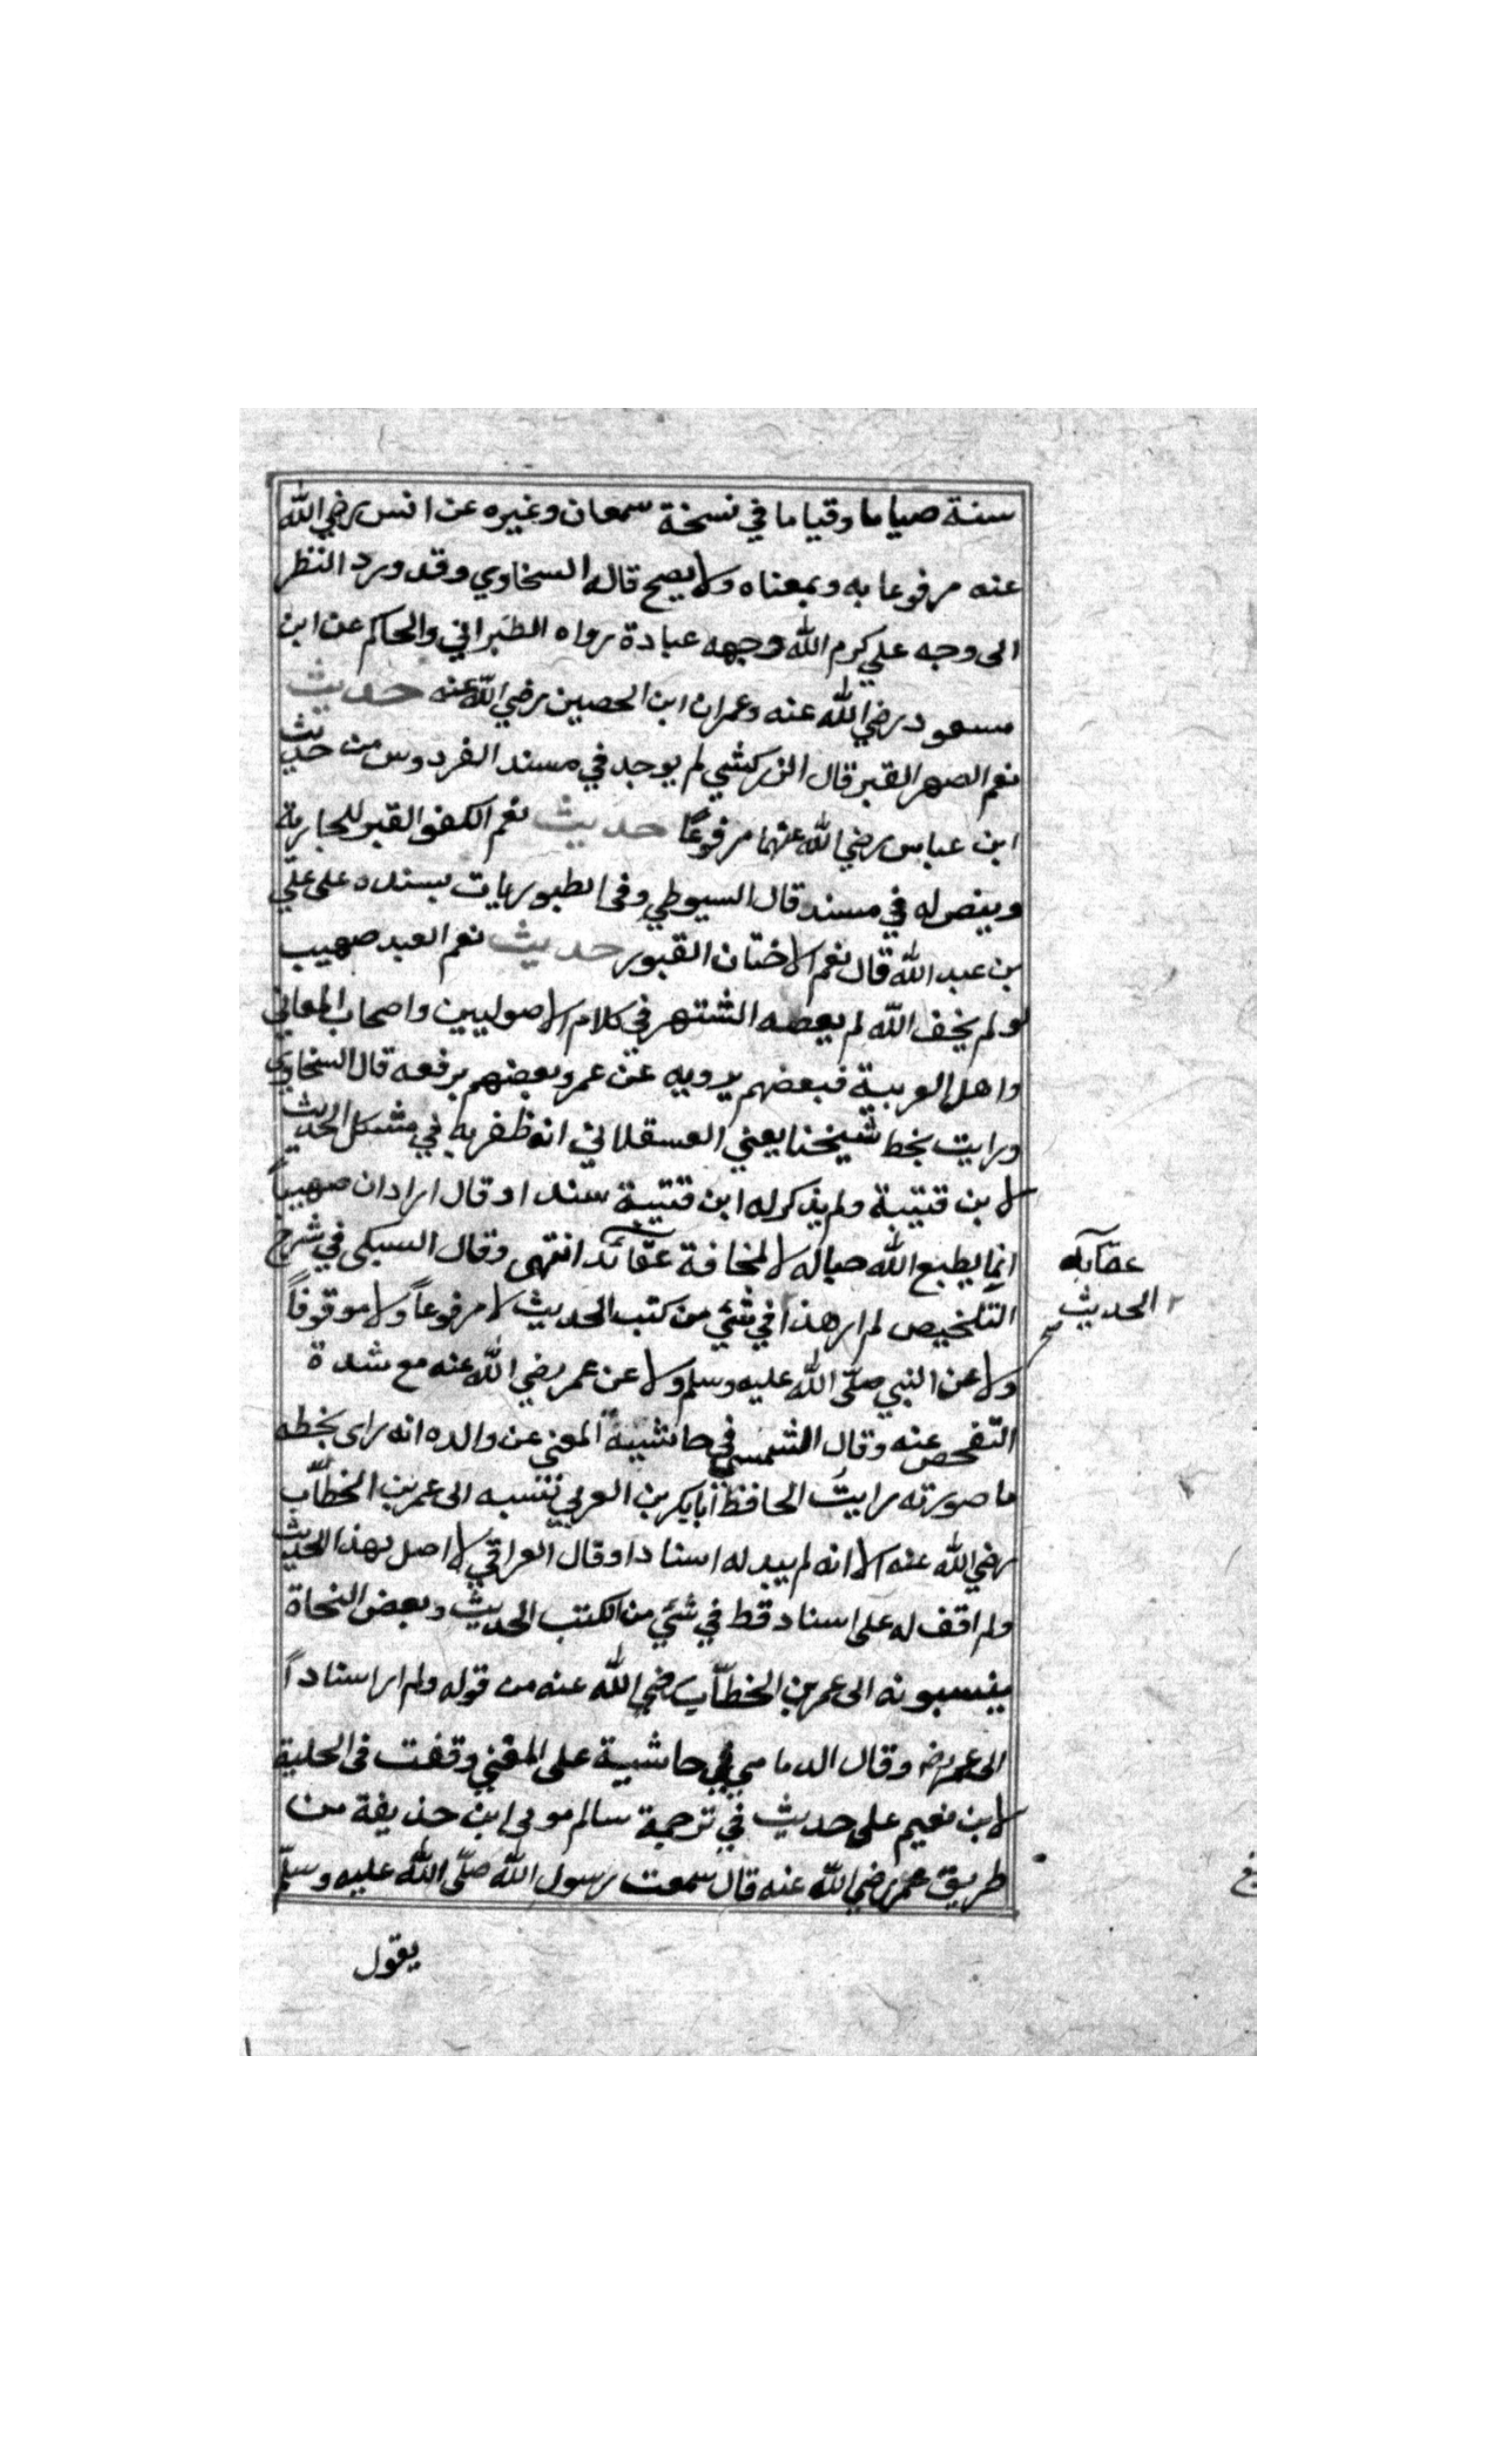 سنة صياما وقياما في نسخة سمعان وغيره عن انس رضي الله
عنه مرفوعا به وبمعناه ولا يصح قاله السخاوي وقد ورد النظر
الى وجه علي كرم الله وجهه عبادة رواه الطبراني والحاكم عن ابن
مسعود رضي الله عنه وعمران ابن الحصين رضي الله عنه حديث
نعم الصهر القبر قال الزركشي لم يوجد في مسند الفردوس من حديث
ابن عباس رضي الله عنهما مرفوعاً حديث نعم الكفو القبر للجارية
وبيض له في مسند قال السيوطي وفى الطبوريات بسنده على علي
بن عبد الله قال نعم الاختان القبور حديث نعم العبد صهيب
لو لم يخف الله لم يعصه الشتهر في كلام الاصوليين واصحاب المعاني
واهل العربية فبعضهم يرويه عن عمر وبعضهم يرفعه قال السخاوي
ورايت بخط شيخنا يعني العسقلاني انه ظفر به في مشكل الحديث
لابن قتيبة ولم يذكر له ابن قتيبة سندا وقال اراد ان صهيباً
انما يطيع الله حباله لا لمخافة عقائد انتهى وقال السبكى في شرح
عقابه
التلخيص لم ار هذا في شئ من كتب الحديث لا مرفوعاً ولا موقوفاً
الحديث
صح
ولا عن النبي صلى الله عليه وسلم ولا عن عمر رضي الله عنه مع شدة
التفحص عنه وقال في حاشيية المغني عن والده انه راى بخطه
ما صورته رايت الحافظ ابا بكر بن العربي تنسبه الى عمر بن الخطاب
رضي الله عنه الا انه لم يبد له اسنادا وقال العراقي لا اصل لهذا الحديث
ولم اقف له على اسناد قط في شئ من الكتب الحديث وبعض النحاة
ينسبونه الى عمر بن الخطاب رضي الله عنه من قوله ولم ار اسناداً
الى عمر رضه وقال الدماميني في حاشيية على المغني وقفت فى الحلية
لابن نعيم على حديث في ترجمة سالم مولى ابن حذيفة من
طريق عمر رضي الله عنه قال سمعت رسول الله صلى الله عليه وسلم
يقول